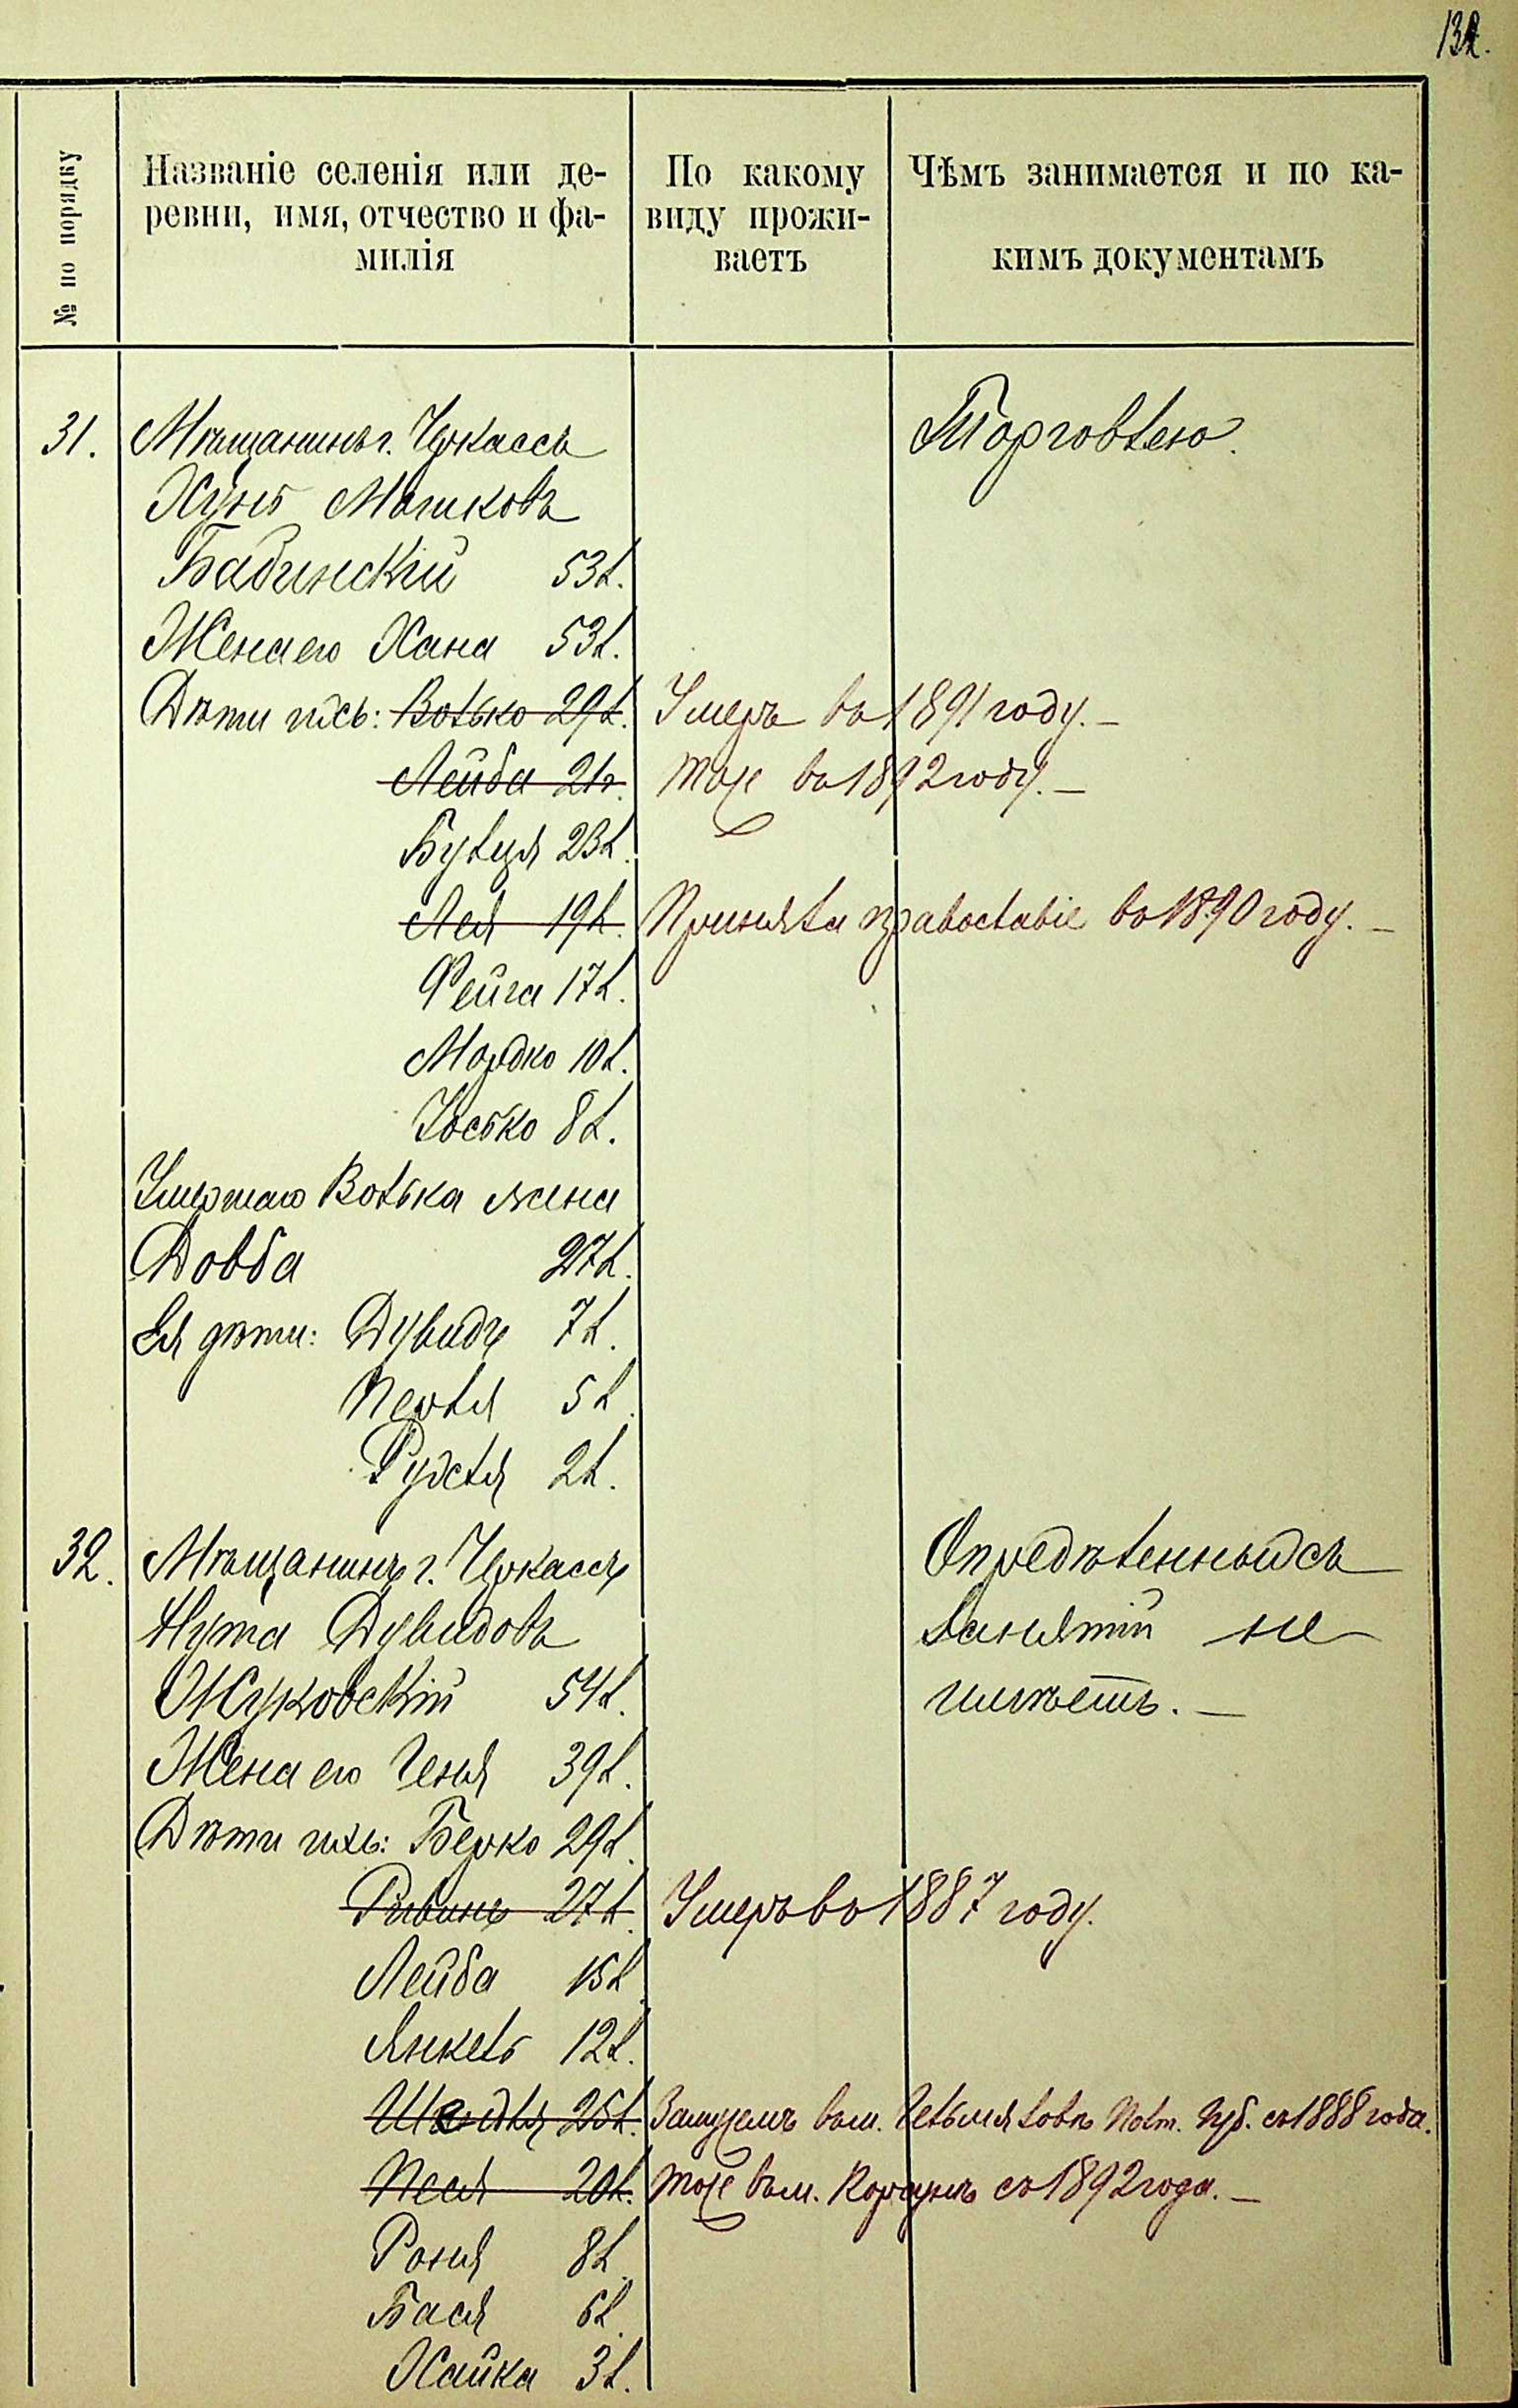 132.
№ по порядку
Названіе селенія или де-
ревни, имя, отчество и фа-
милія
По какому
виду прожи-
ваетъ
Чѣмъ занимается и по ка-
кимъ документамъ
31. Мѣщанинъ г. Черкассъ Торговлею.
Хунъ Мошковъ
Бабинскій 53 л.
Жена его Хана 53 л.
Дѣти ихъ: Волько 29 л. Умеръ въ 1891 году. —
Лейба 21 г. тоже въ 1892 году. —
Бульця 23 л.
Лея 19 л. Приняла православіе въ 1890 году. —
Фейга 17 л.
Мордко 10 л.
Іосько 8 л.
Умершаго Волька жена
Довба 27 л.
Ея дѣти: Дувидъ 7 л.
Перля 5 л.
Рухля 2 л.
32. Мѣщанинъ г. Черкассъ Опредѣленныхъ
Нута Дувидовъ занятій не
Жуковскій 54 л. имѣетъ. —
Жена его Геня 39 л.
Дѣти ихъ: Берко 29 л.
Рувинъ 27 л. Умеръ въ 1887 году.
Лейба 15 л.
Янкель 12 л.
Шейдля 25 л. Замужемъ въ м. Гельмязовъ Полт. Губ. съ 1888 года.
Песя 20 л. тоже въ м. Корсунъ съ 1892 года. —
Роня 8 л.
Бася 6 л.
Хайка 3 л.